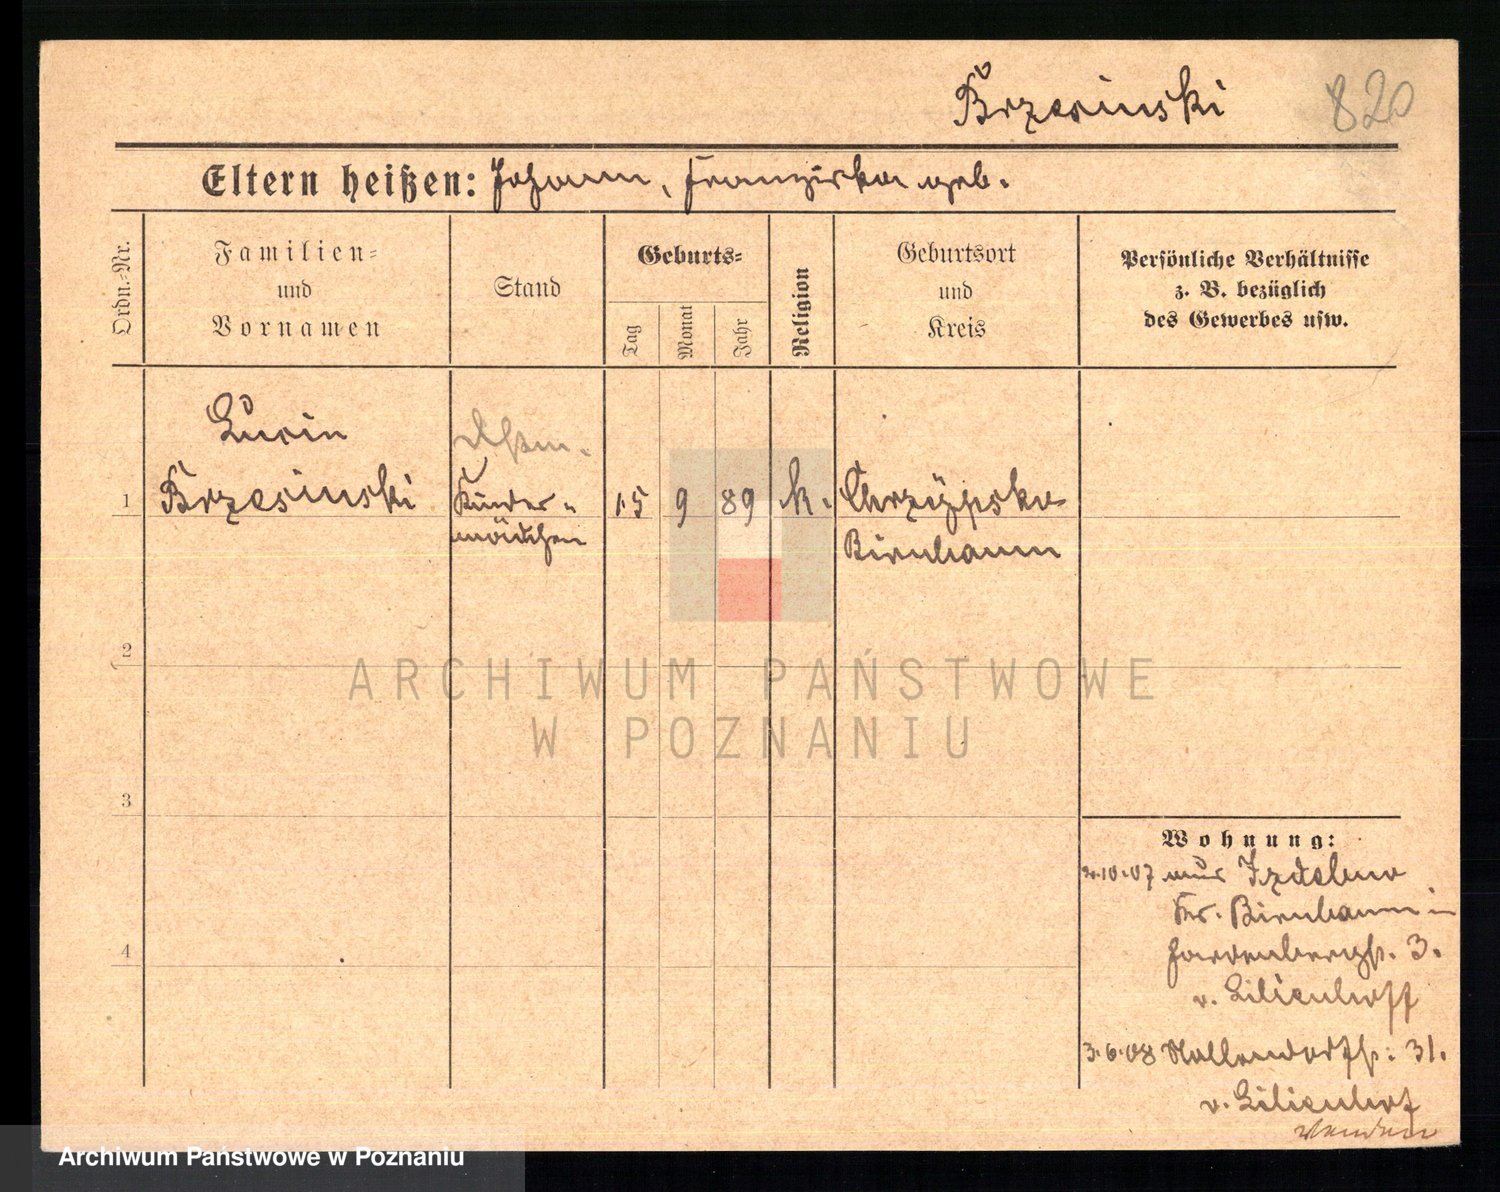 Brzesinski 820
Eltern heißen: Johann, Franziska geb.
Ordn.-Nr.
Familien=
und
Vornamen
Stand
Geburts=
Tag
Monat
Jahr
Religion
Geburtsort
und
Kreis
Persönliche Verhältnisse
z. B. bezüglich
des Gewerbes usw.
Lucin
1 Brzesinski Kinder= 15 9 89 k. Chrzypsko
mädchen Birnbaum
2
3
4
Wohnung:
2.10.07 aus Izdebno
Kr. Birnbaum in
Hardenbergstr. 3.
v. Lilienhoff
3.6.08 Nollendorfstr: 31.
v. Lilienhof
wenden
ARCHIWUM PAŃSTWOWE
W POZNANIU
Archiwum Państwowe w Poznaniu